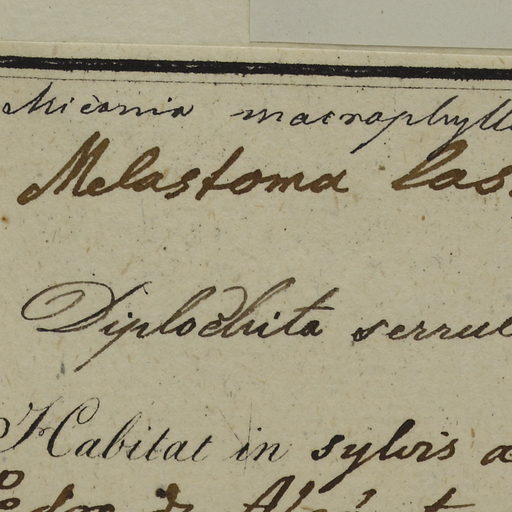 Miconia macrophyll
Melastoma las
Diplochita serrul
Habitat in sylvis